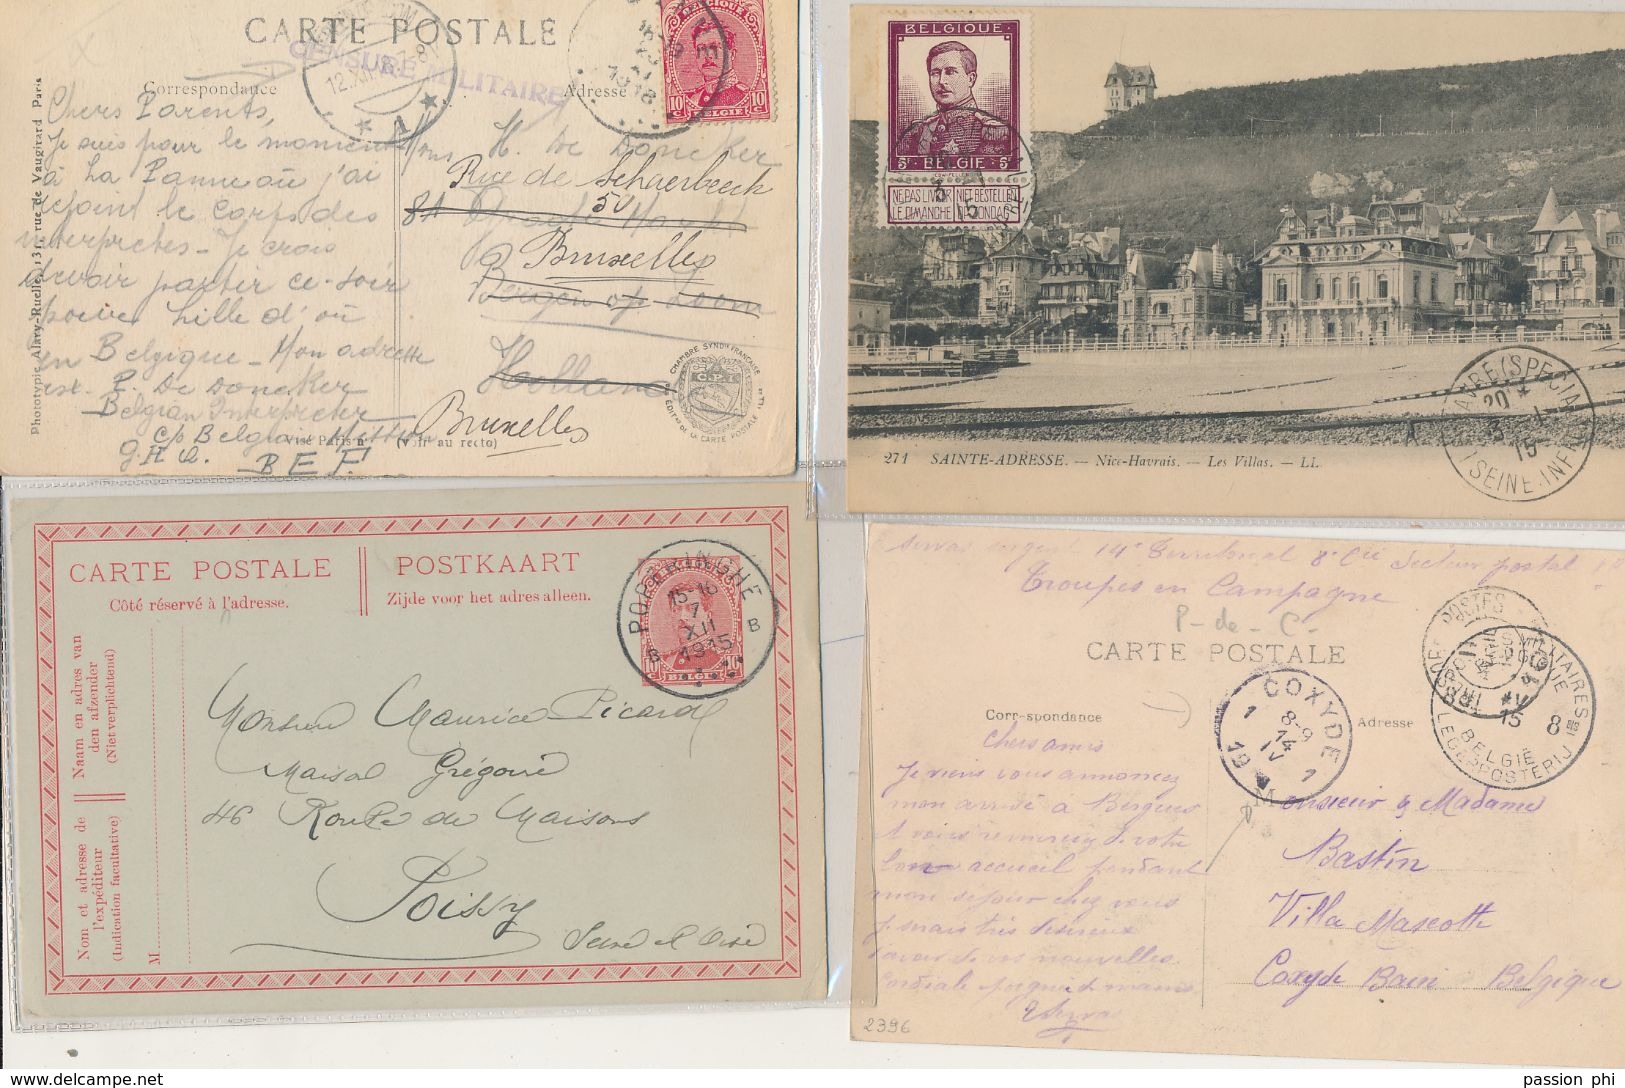 CARTE POSTALE
CENSURE MILITAIRE
12.XII
BELGIQUE
10 c BELGIE 10 c
1918
Correspondance
Adresse
Phototypie Alary-Ruelle, 131, rue de Vaugirard Paris
Chers Parents,
Je suis pour le moment
à La Panne où j'ai
rejoint le Corps des
interprètes - Je crois
devoir partir ce soir
pour Lille d'où
en Belgique - Mon adresse
est. P. De Doncker
Belgian Interpreter
c/o Belgian
G.H.Q. B.E.F.
Mons. H. De Doncker
Rue de Schaerbeech
50
84
Bruxelles
Bergen op Zoom
Hollande
Bruxelles
Visé Paris n°
(Voir au recto)
CHAMBRE SYNDLE FRANÇAISE
C.P.I.
BELGIQUE
5F BELGIE 5F
NE PAS LIVRER LE DIMANCHE
NIET BESTELLEN OP ZONDAG
HAVRE (SPECIAL)
20
3 -1
15
SEINE-INFRE
271 SAINTE-ADRESSE. — Nice-Havrais. — Les Villas. — LL.
CARTE POSTALE
Côté réservé à l'adresse.
POSTKAART
Zijde voor het adres alleen.
POPERINGHE
15-16
7
XII
1915
B B
10 c BELGIE 10 c
Naam en adres van
den afzender
(Niet verplichtend)
Nom et adresse de
l'expéditeur
(Indication facultative)
M
Monsieur Maurice Picard
Maison Grégoire
46 Route de Maisons
Poissy
Seine et Oise
14e Territorial 8e Cie Secteur postal
Troupes en Campagne
P-de-C-
CARTE POSTALE
Correspondance
Adresse
COXYDE
8-9
14
IV
1 1
POSTES MILITAIRES
BELGIE
LEGERPOSTERIJ
15
8
Chers amis
Je viens vous annoncez
mon arrivé à Bergues
et vous remerciez de votre
bon accueil pendant
mon séjour chez vous
je serais très désireux
d'avoir de vos nouvelles.
Cordiale poignée de mains
Monsieur & Madame
Bastin
Villa Mascotte
Coxyde Bain Belgique
2396
passion phi